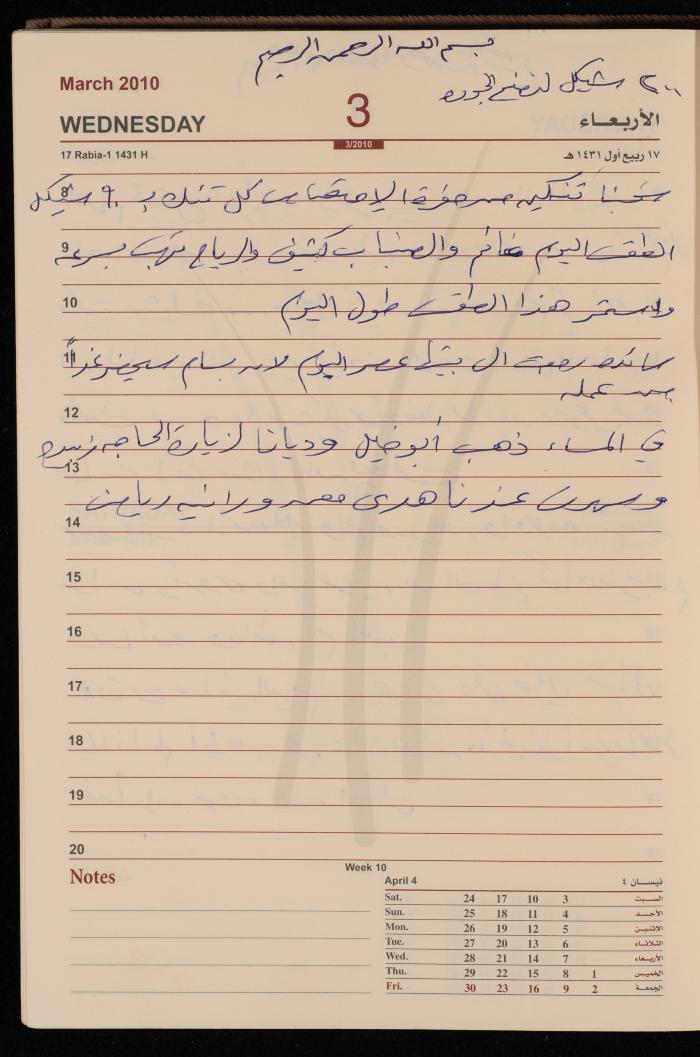 بسم الله الرحمن الرحيم
٢٠٠ شيكل لنضح الجورة
March 2010
3
WEDNESDAY
الأربعـــاء
3/2010
17 Rabia-1 1431 H
١٧ ربيع أول ١٤٣١ هـ
8
تنكين من حفرة كل تنك بـ ٩٠ شيكل
9
الطقس اليوم غائم والضباب كثيف والرياح تهب بسرعه
10
واستمر هذا الطقس طول اليوم
11
سائده رجعت الى بيتها عصر اليوم لان بسام سيحضر غداً
من عمله
12
في المساء ذهب أبوخليل وديانا لزيارة الحاجه زينب
13
وسهرت عندنا هدى معمر ورانيه رياض
14
15
16
17
18
19
20
Notes
Week 10
April 4
نيســان ٤
Sat. 24 17 10 3 السبت
Sun. 25 18 11 4 الأحـد
Mon. 26 19 12 5 الإثنين
Tue. 27 20 13 6 الثلاثاء
Wed. 28 21 14 7 الأربعاء
Thu. 29 22 15 8 1 الخميس
Fri. 30 23 16 9 2 الجمعة